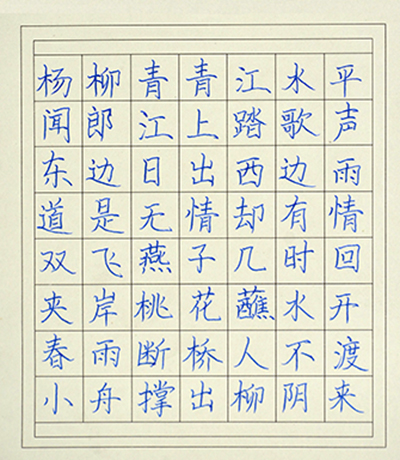 杨柳青青江水平
闻郎江上踏歌声
东边日出西边雨
道是无情却有情
双飞燕子几时回
夹岸桃花蘸水开
春雨断桥人不渡
小舟撑出柳阴来